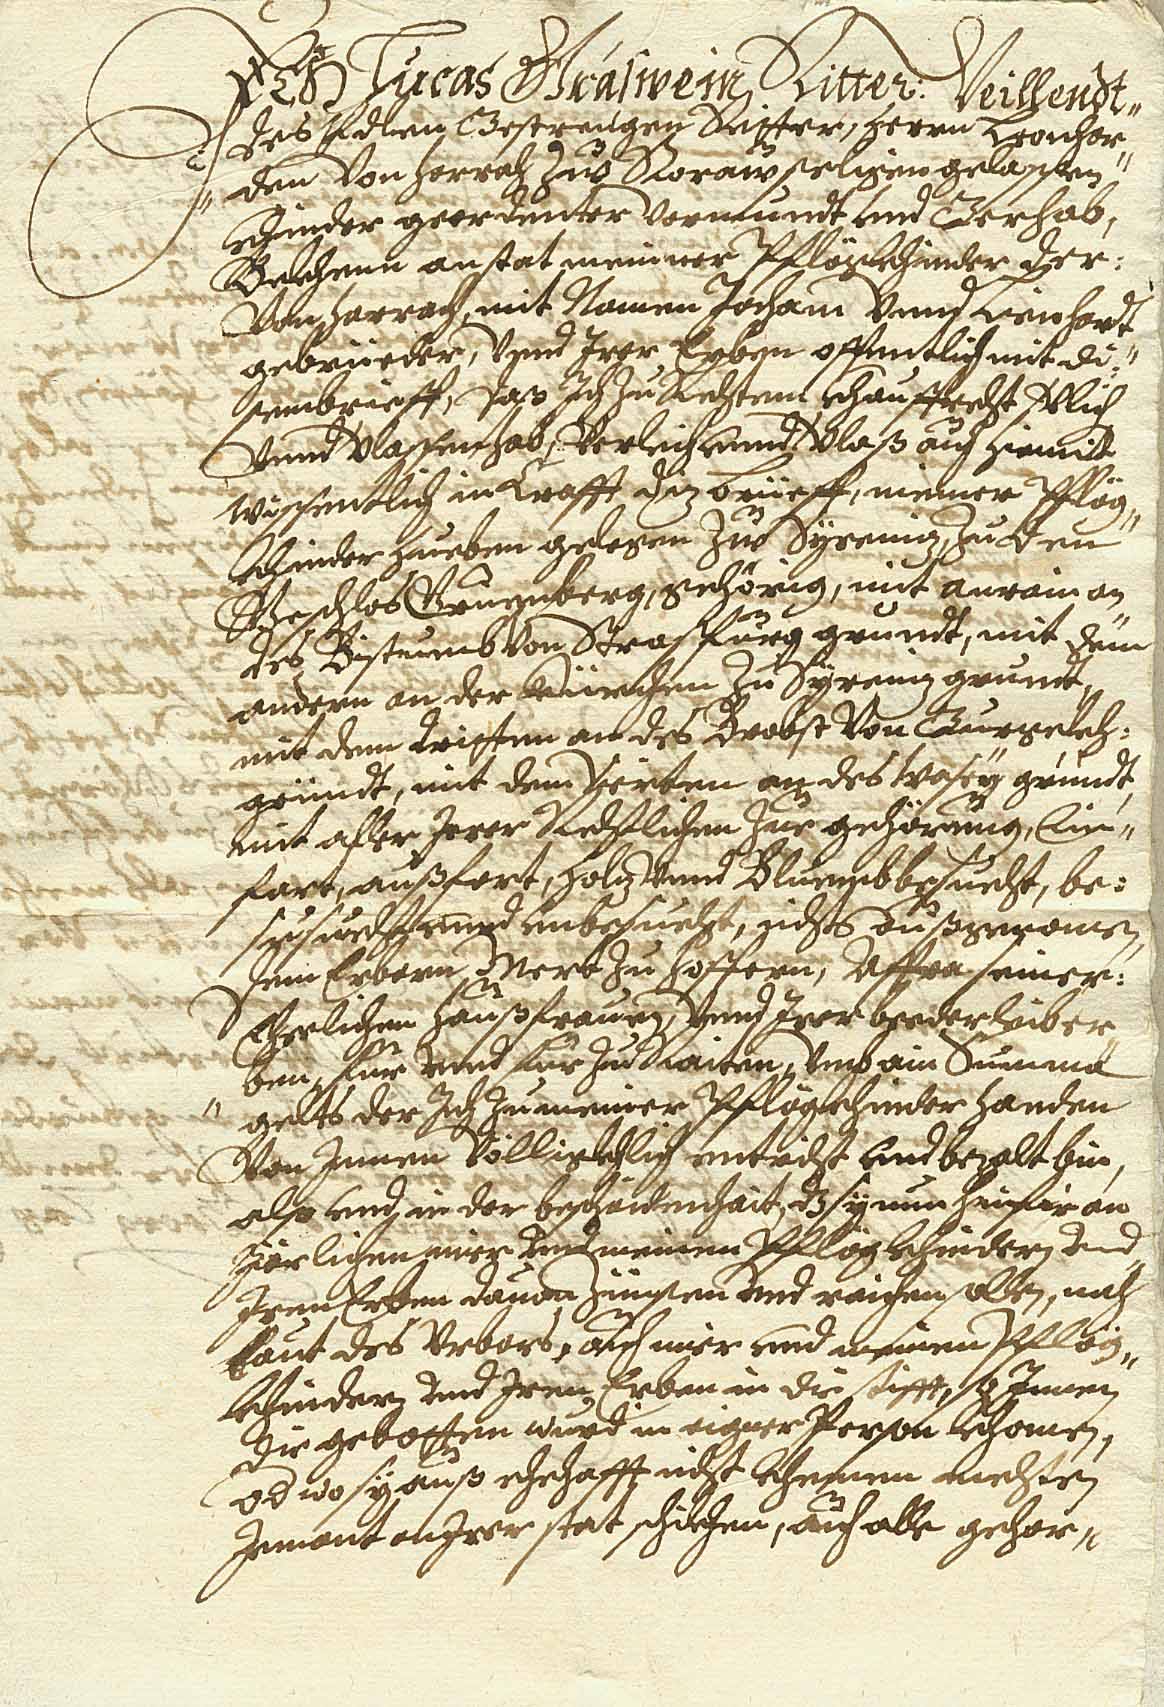 Ich Lucas Gräswein Ritter: Weillendt„
des Edlen Gestrengen Ritter, Herrn Leonhar„
den Von Harrach zw Rorau seligen gelassen
Khinder geordenter Vormundt vnd Gerhab,
Bekhenn anstat meiner Pflögkhinder Der:
Von Harrach, mit Namen Jocham Vnnd Lienhardt
gebrüeder, Vnnd Jrer Erben offentlich mit di„
sem brieff, das Jch zu Rechtem khauffrecht
Vnnd Verlassen hab, Verleich vnnd Verlaß auch hiemit
wissentlich in Krafft ditz brieff, meiner Pflög„
khinder hueben gelegen zw Syrenitz, zu Den
Geschlos Gruenberg, gehörig, mit ainrain an
des Bistumb Von Strasburg grundt, mit dem
andern an der Kürchen zu Syrenitz grundt,
mit dem dritten an des Brobst Von
gründt, mit dem Vierten an des grundt,
mit aller Jrer Rechtlichen Zue gehörung, Ein„
fart, außfart, holtz Vnnd Bluembbesuecht, be:
suecht vnnd vnbesuecht, nichts außgenomen,
dem Erbern Mert zu Hoffern, Affra seiner:
Eherlichen Haußfrauen, Vnnd Jrer beeder leiber
ben, für vnnd für zu Raiten, Vmb ain Summa
gelts der Jch zu meiner Pflögkhinder handen
Von Jnnen Völligkhlich entricht vnd bezalt bin,
also vnd in der beschaidenhait, dz sy nun hinfür an
Järlichen mier vnd meinen Pflögkhindern vnd
Jren Erben dauon Zünsen vnd raichen sollen, nach
laut des Vrbars, auch mier vnd meinen Pflög„
khindern vnd Jren Erben in die stifft, so Jnnen
die gebotten wird in aigner Person khomen,
Od wo sy auß ehehafft nicht khumen mechten
Jemant an Jrer stat schikhen, auch alle gehor„